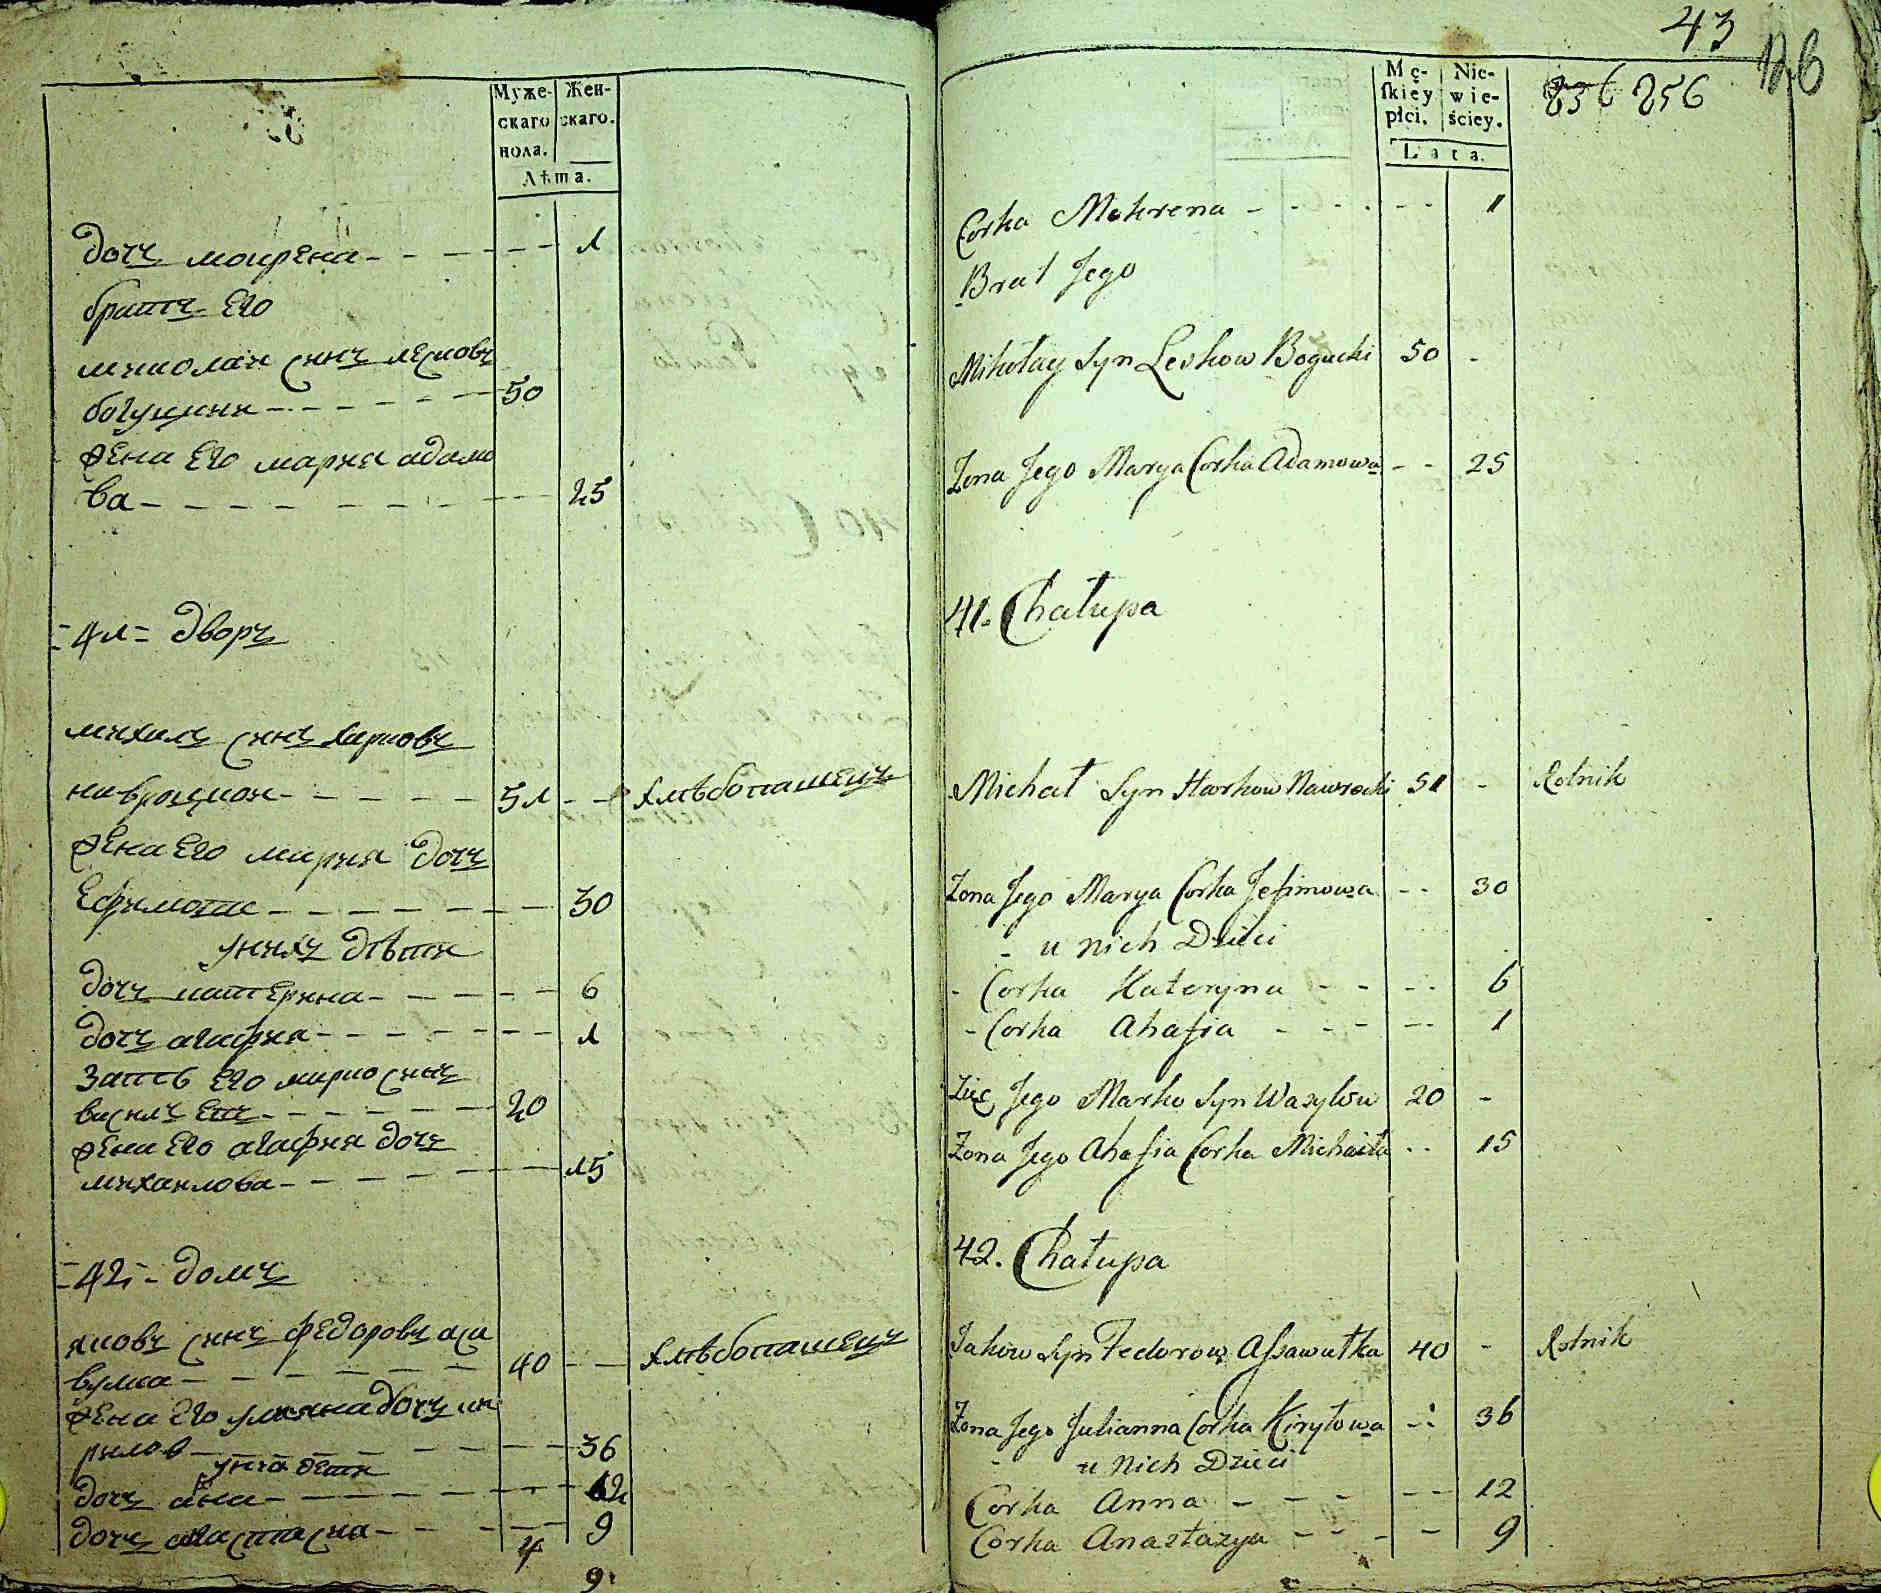 Муже-
скаго
пола.
Жен-
скаго.
Лѣта.
дочъ мокрена - - - - - - 1
братъ Его
миколай синъ лесковъ
богуцкий - - - - - - 50
жена Его мария адамо
ва - - - - - - - - 25
= 41 = дворъ
михалъ синъ харковъ
навроцкой - - - - - - 51 - - хлѣбопашецъ
жена Его мария дочъ
Ефимова - - - - - - - - 30
у нихъ дѣти
дочъ катерина - - - - - - 6
дочъ агафия - - - - - - - 1
зять Его марко синъ
василъ - - - - - - 20
жена Его агафия дочъ
михаилова - - - - - - 15
= 42 = домъ
яковъ синъ федоровъ аса
вулка - - - - - - 40 - - хлѣбопашецъ
жена Его улияна дочъ ки
рилов - - - - - - - - 36
дети
дочъ ана - - - - - - - 12
дочъ анастасия - - - - - - 9
4
9
43
126
256
Mę-
ſkiéy
płci.
Nie-
wie-
ściey.
Lata.
Corka Mokrena - - - - - - 1
Brat Jego
Mikołay Syn Leskow Bogucki 50 -
Zona Jego Marya Corka Adamowa - - 25
41. Chałupa
Michał Syn Harkow Nawrocki 51 - Rolnik
Zona Jego Marya Corka Jefimowa - - 30
- u nich Dzieci
- Corka Kateryna - - - - 6
- Corka Ahafia - - - - - 1
Zięć Jego Marko Syn Wasylow 20 -
Zona Jego Ahafia Corka Michaiła - - 15
42. Chałupa
Jakow Syn Fedorow Assawułka 40 - Rolnik
Zona Jego Julianna Corka Kiryłowa - - 36
- u nich Dzieci
Corka Anna - - - - - - 12
Corka Anastazya - - - - - 9